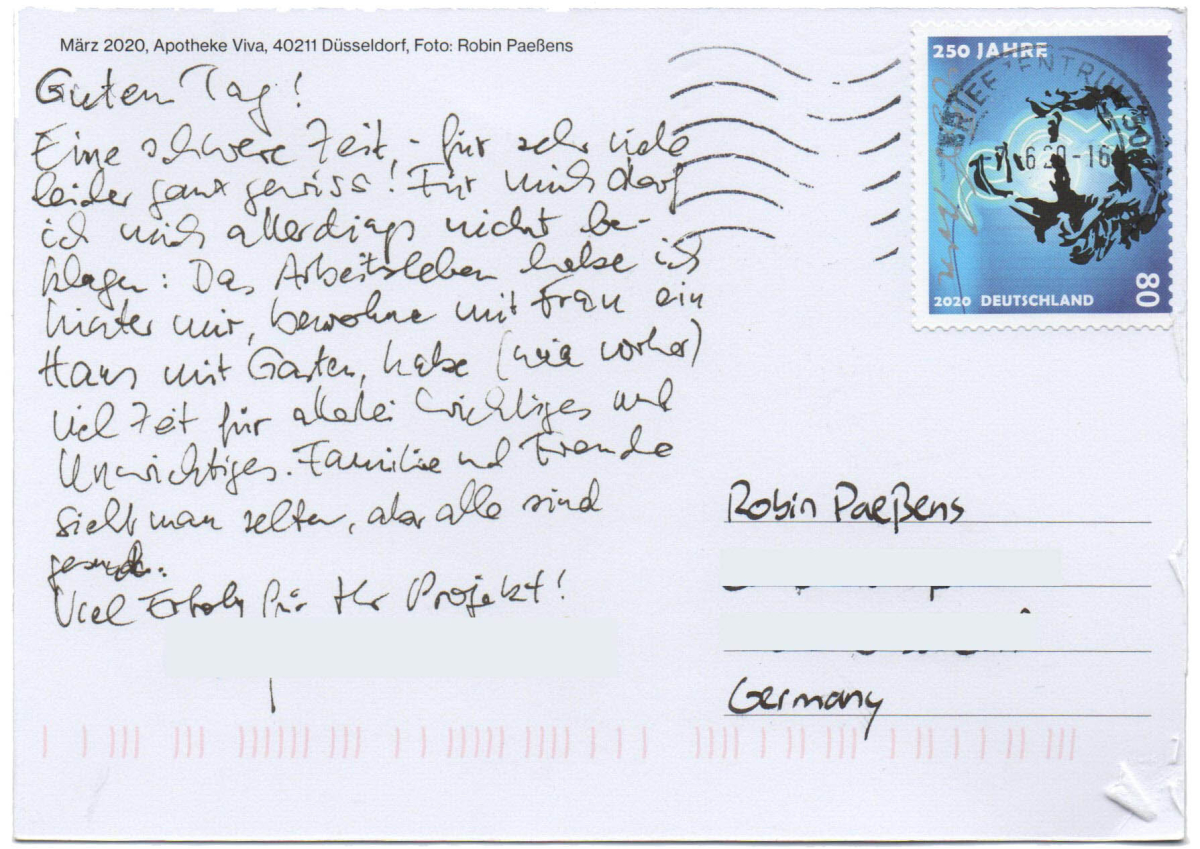 März 2020, Apotheke Viva, 40211 Düsseldorf, Foto: Robin Paeßens
Guten Tag!
Eine schwere Zeit, - für sehr viele
leider ganz gewiss! Für mich darf
ich mich allerdings nicht be-
klagen: Das Arbeitsleben habe ich
hinter mir, bewohne mit Frau ein
Haus mit Garten, habe (wie vorher)
viel Zeit für allerlei Wichtiges und
Unwichtiges. Familie und Freunde
sieht man selten, aber alle sind
gesund.
Viel Erfolg für Ihr Projekt!
250 JAHRE
BRIEFZENTRUM
2020 DEUTSCHLAND
80
Robin Paeßens
Germany